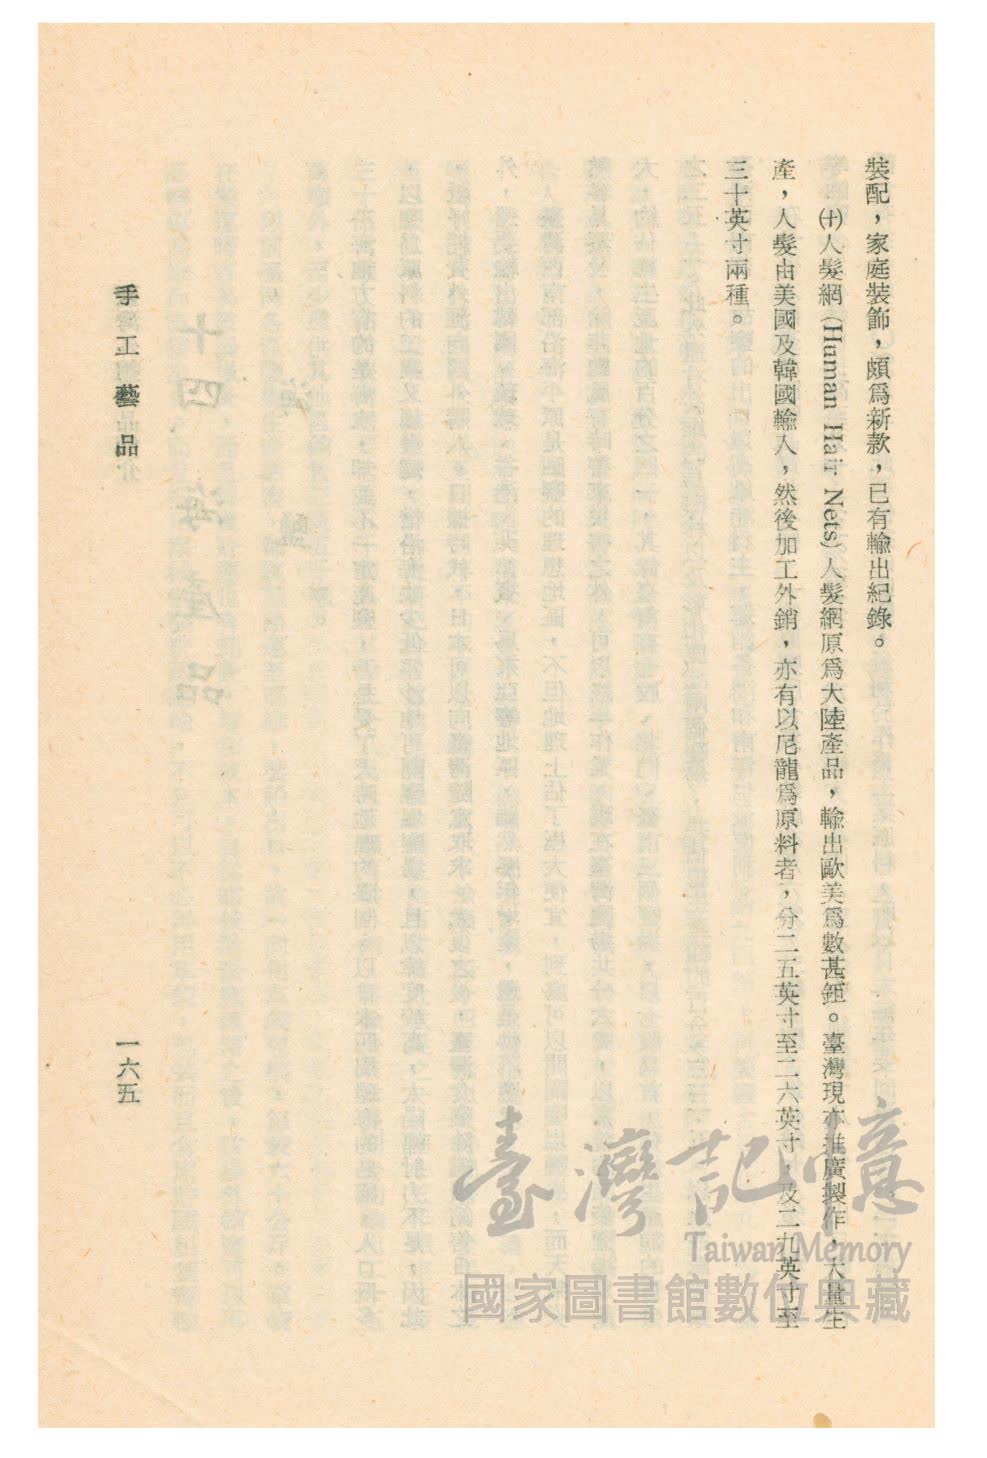 裝配，家庭裝飾，頗爲新款，已有輸出紀錄。
㈩人髮網(Human Hair Nets)人髮網原爲大陸產品，輸出歐美爲數甚鉅。臺灣現亦推廣製作，大量生
產，人髮由美國及韓國輸入，然後加工外銷，亦有以尼龍爲原料者，分二五英寸至二六英寸，及二九英寸至
三十英寸兩種。
手工藝品
一六五
臺灣記憶
Taiwan Memory
國家圖書館數位典藏